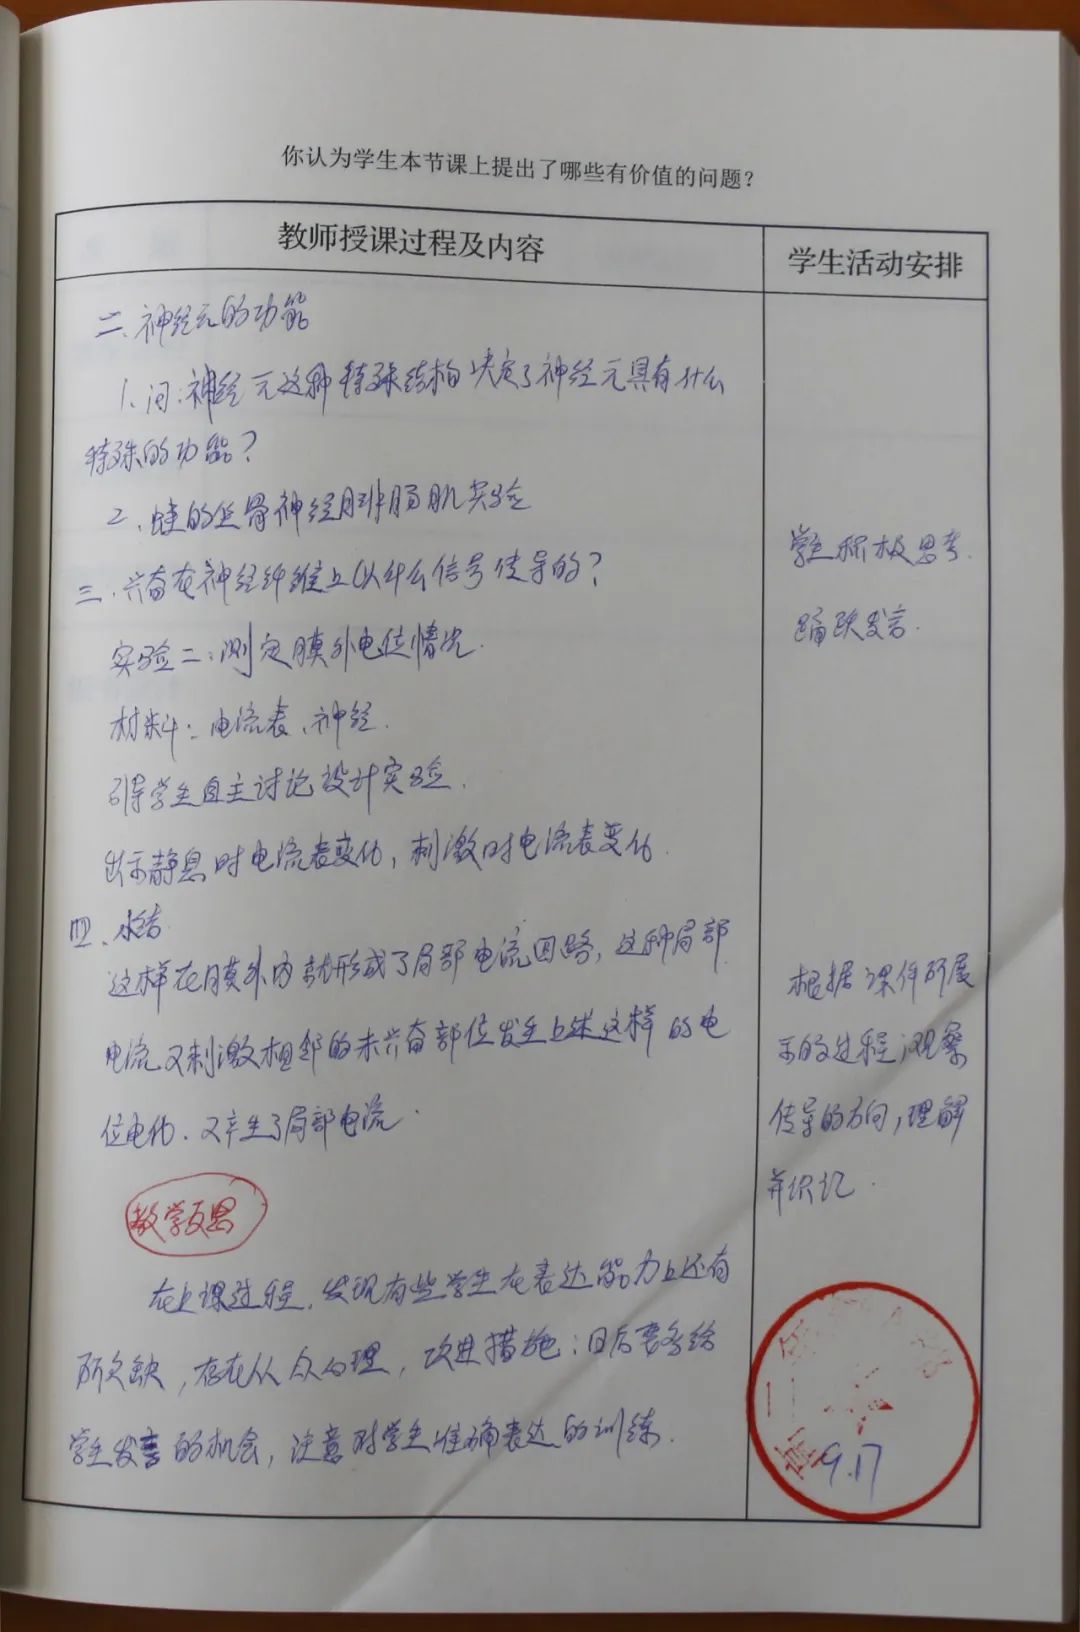 你认为学生本节课上提出了哪些有价值的问题？
教师授课过程及内容
学生活动安排
二、神经元的功能
1、问：神经元这种特殊结构决定了神经元具有什么
特殊的功能？
2、蛙的坐骨神经腓肠肌实验
三、兴奋在神经纤维上以什么信号传导的？
实验二：测定膜外电位情况.
材料：电流表、神经.
引导学生自主讨论设计实验.
出示静息时电流表变化，刺激时电流表变化.
四、小结
这样在膜外内就形成了局部电流回路，这种局部
电流又刺激相邻的未兴奋部位发生上述这样的电
位电化.又产生了局部电流.
教学反思
在上课过程，发现有些学生在表达能力上还有
所欠缺，存在从众心理，改进措施：日后要多给
学生发言的机会，注意对学生准确表达的训练.
学生积极思考.
踊跃发言.
根据课件所展
示的过程，观察
传导的方向，理解
并识记.
高二年
9.17